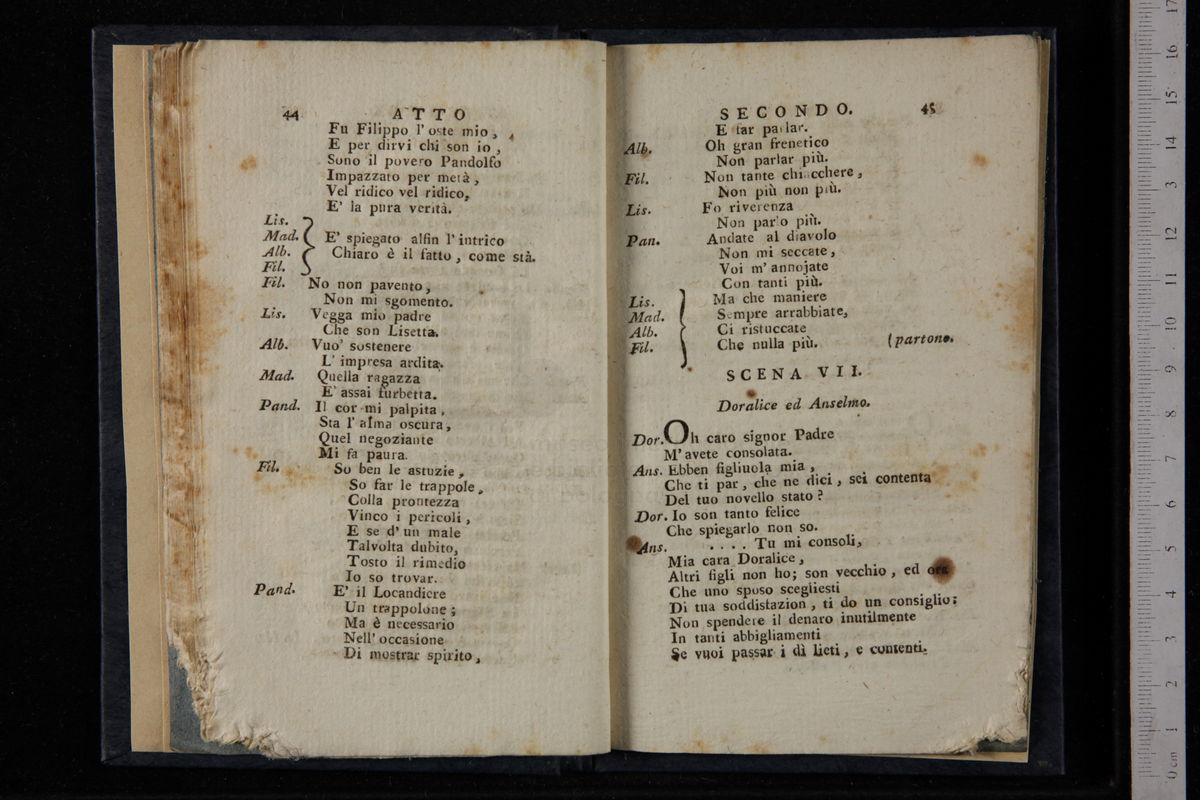 44 ATTO
Fu Filippo l' oste mio,
E per dirvi chi son io,
Sono il povero Pandolfo
Impazzato per metà,
Vel ridico vel ridico,
E' la pura verità.
Lis.
Mad. E' spiegato alfin l' intrico
Alb. Chiaro è il fatto, come stà.
Fil.
Fil. No non pavento,
Non mi sgomento.
Lis. Vegga mio padre
Che son Lisetta.
Alb. Vuo' sostenere
L' impresa ardita.
Mad. Quella ragazza
E' assai furbetta.
Pand. Il cor mi palpita,
Sta l' alma oscura,
Quel negoziante
Mi fa paura.
Fil. So ben le astuzie,
So far le trappole,
Colla prontezza
Vinco i pericoli,
E se d' un male
Talvolta dubito,
Tosto il rimedio
Io so trovar.
Pand. E' il Locandiere
Un trappolone;
Ma è necessario
Nell' occasione
Di mostrar spirito,
SECONDO. 45
E far parlar.
Alb. Oh gran frenetico
Non parlar più.
Fil. Non tante chiacchere,
Non più non più.
Lis. Fo riverenza
Non parlo più.
Pan. Andate al diavolo
Non mi seccate,
Voi m' annojate
Con tanti più.
Lis. Ma che maniere
Mad. Sempre arrabbiate,
Alb. Ci ristuccate
Fil. Che nulla più. (partono.
SCENA VII.
Doralice ed Anselmo.
Dor. Oh caro signor Padre
M' avete consolata.
Ans. Ebben figliuola mia,
Che ti par, che ne dici, sei contenta
Del tuo novello stato?
Dor. Io son tanto felice
Che spiegarlo non so.
Ans. .... Tu mi consoli,
Mia cara Doralice,
Altri figli non ho; son vecchio, ed ora
Che uno sposo scegliesti
Di tua soddisfazion, ti do un consiglio:
Non spendere il denaro inutilmente
In tanti abbigliamenti
Se vuoi passar i dì lieti, e contenti.
0 cm 1 2 3 4 5 6 7 8 9 10 11 12 13 14 15 16 17